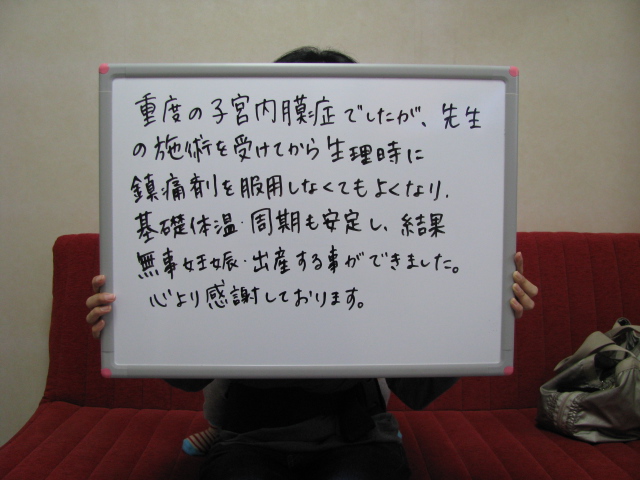 重度の子宮内膜症でしたが、先生
の施術を受けてから生理時に
鎮痛剤を服用しなくてもよくなり、
基礎体温・周期も安定し、結果
無事妊娠・出産する事ができました。
心より感謝しております。